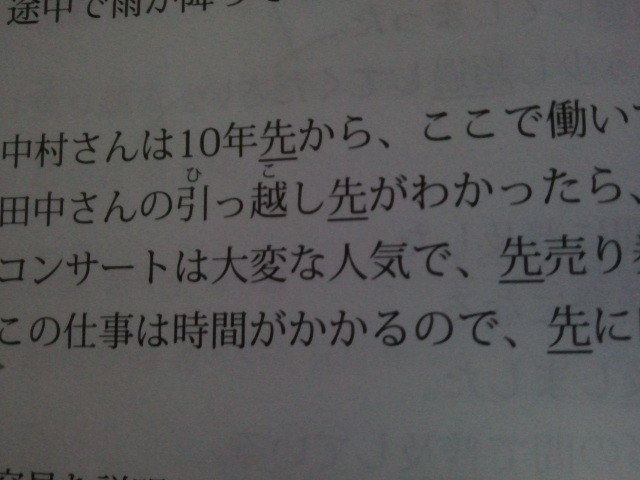 途中で雨が降って
中村さんは10年先から、ここで働い
田中さんの引っ越し先がわかったら、
コンサートは大変な人気で、先売り
この仕事は時間がかかるので、先に